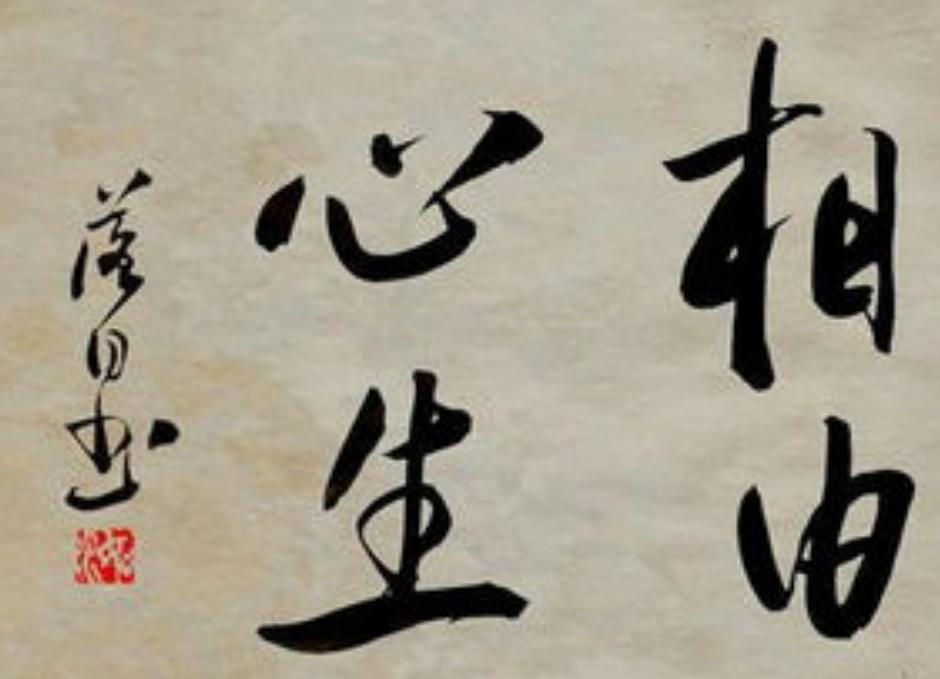 相由
心生